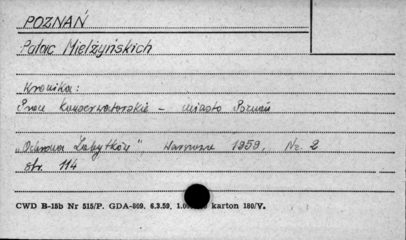 POZNAŃ
Pałac Mielżyńskich
Kronika:
Prace konserwatorskie - miasto Poznań
"Ochrona Zabytków", Warszawa 1959, Nr. 2
str. 114
CWD B-15b Nr 515/P. GDA-809. 6.3.59. 1.0 karton 180/V.